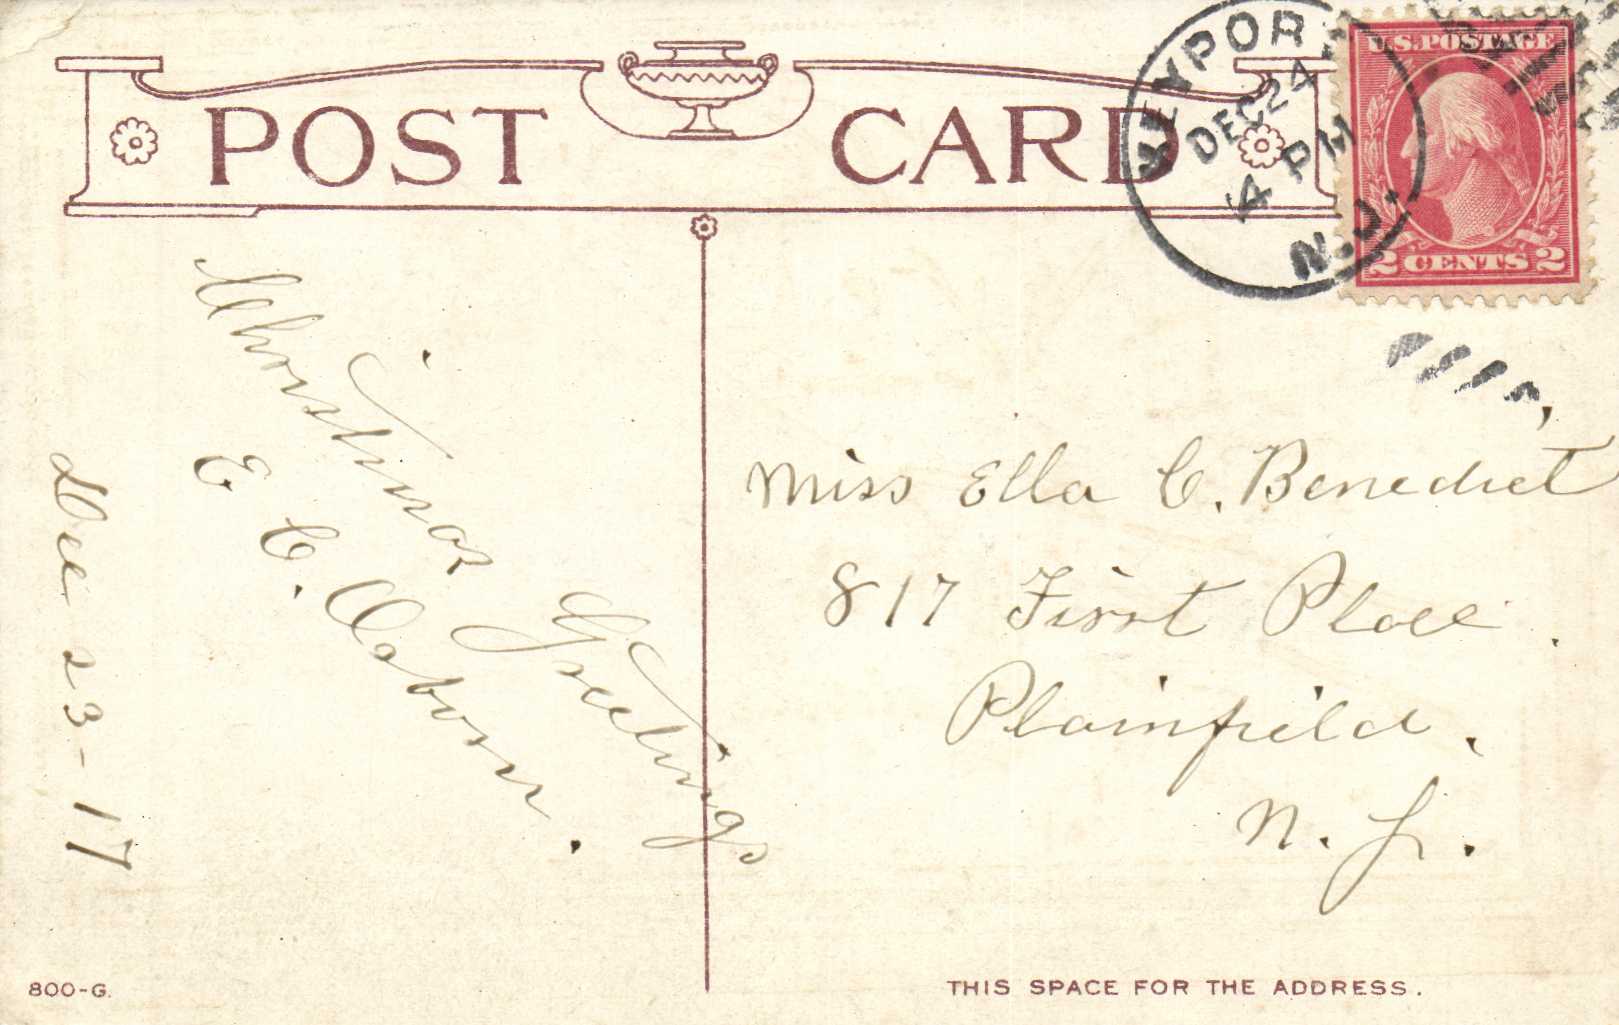 POST CARD
KEYPORT
DEC 24
4 PM
N.J.
U.S. POSTAGE
2 CENTS 2
Christmas Greetings
E. C. Osborn.
Dec 23-17
Miss Ella C. Benedict,
817 First Place.
Plainfield.
N. J.
800-G.
THIS SPACE FOR THE ADDRESS.